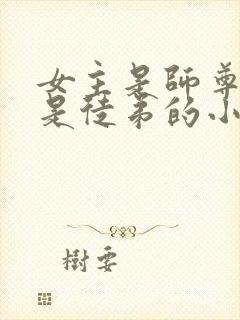 女主是師尊
是徒弟的小
樹要